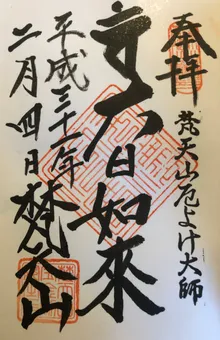 奉拝
梵天山厄よけ大師
大日如來
平成三十一年
二月四日 梵天山